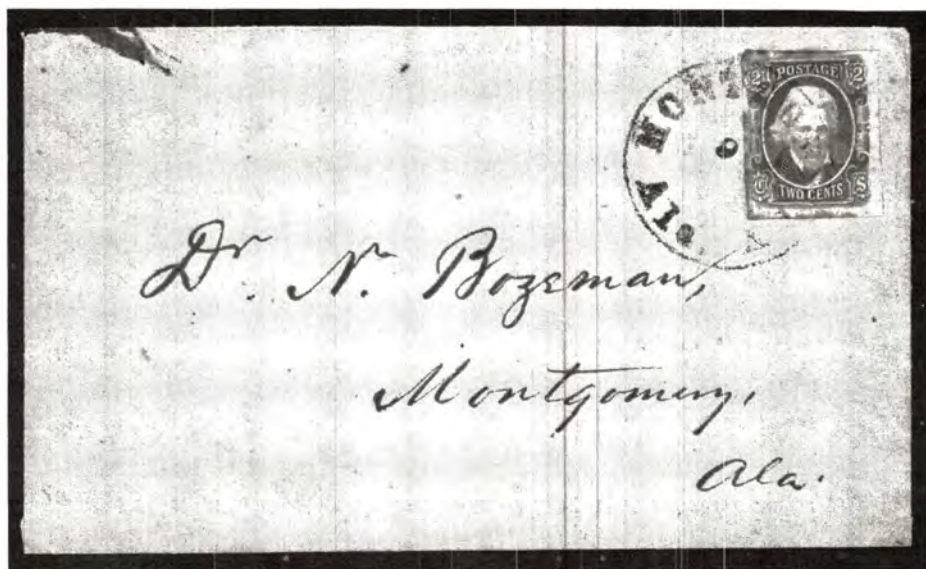 MONT
2 POSTAGE 2
C TWO CENTS S
Dr. N. Bozeman,
Montgomery,
Ala.